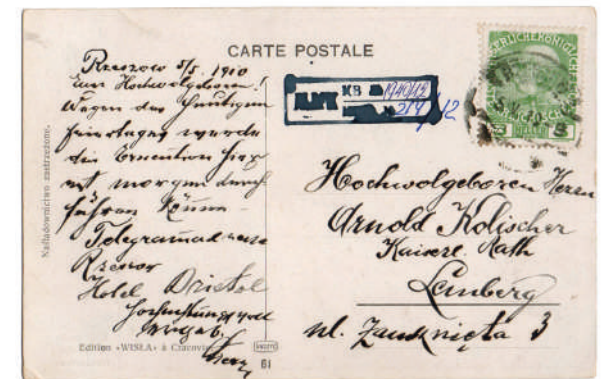 CARTE POSTALE
Rzeszow 5/5. 1910
Euer Hochwolgeboren!
Wegen des heutigen
Feiertages werde
die Execution hier
erst morgen durch
führen können
Telegramadresse
Rzeszow
Hotel
hochachtungsvoll
ergeb.
Nasladownictwo zastrzeżone.
Edition «WISŁA» à Cracovie
61
KB 1940/12
219/12
3 HELLER 3
Hochwolgeboren Herrn
Arnold Kolischer
Kaiserl. Rath
Lemberg
pl. Zamknięta 3